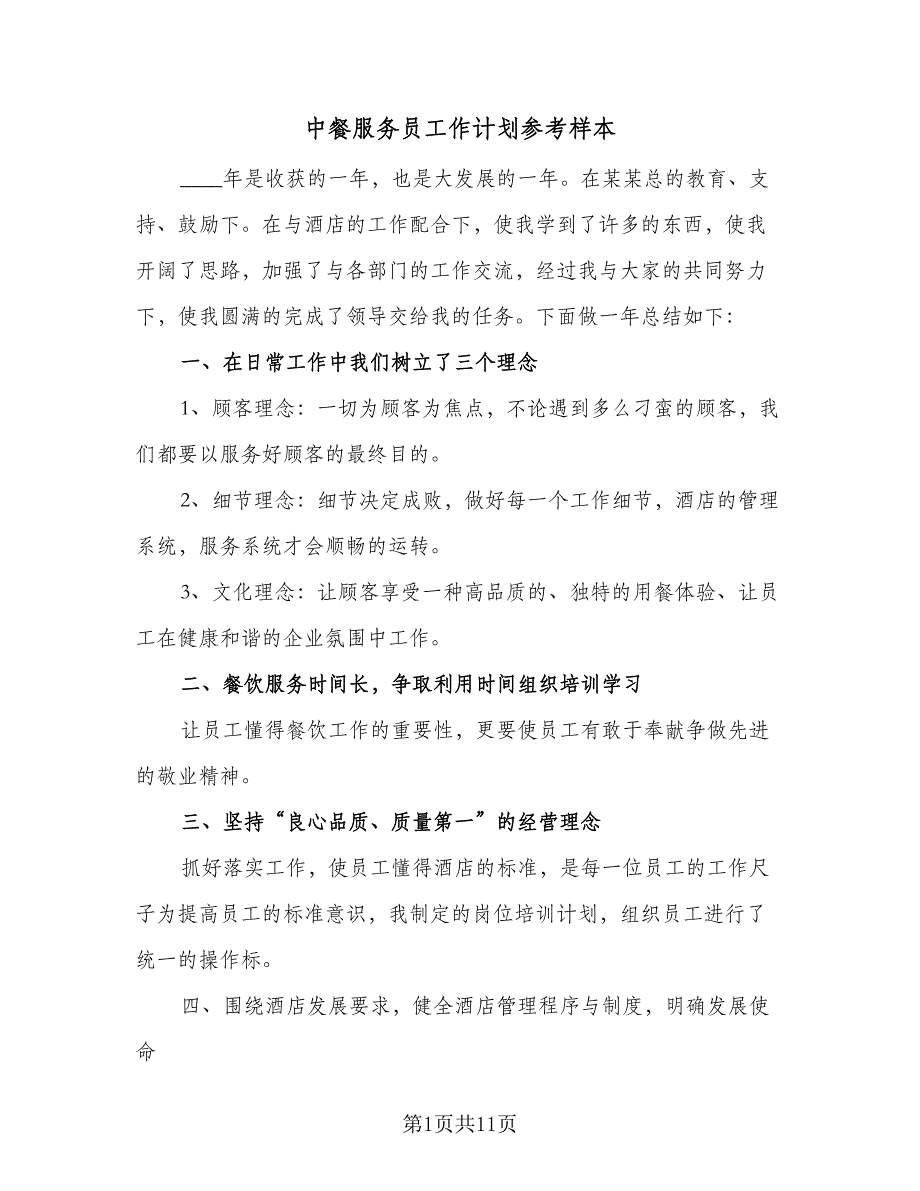 中餐服务员工作计划参考样本
____年是收获的一年，也是大发展的一年。在某某总的教育、支
持、鼓励下。在与酒店的工作配合下，使我学到了许多的东西，使我
开阔了思路，加强了与各部门的工作交流，经过我与大家的共同努力
下，使我圆满的完成了领导交给我的任务。下面做一年总结如下：
一、在日常工作中我们树立了三个理念
1、顾客理念：一切为顾客为焦点，不论遇到多么刁蛮的顾客，我
们都要以服务好顾客的最终目的。
2、细节理念：细节决定成败，做好每一个工作细节，酒店的管理
系统，服务系统才会顺畅的运转。
3、文化理念：让顾客享受一种高品质的、独特的用餐体验、让员
工在健康和谐的企业氛围中工作。
二、餐饮服务时间长，争取利用时间组织培训学习
让员工懂得餐饮工作的重要性，更要使员工有敢于奉献争做先进
的敬业精神。
三、坚持“良心品质、质量第一”的经营理念
抓好落实工作，使员工懂得酒店的标准，是每一位员工的工作尺
子为提高员工的标准意识，我制定的岗位培训计划，组织员工进行了
统一的操作标。
四、围绕酒店发展要求，健全酒店管理程序与制度，明确发展使
命
第1页共11页